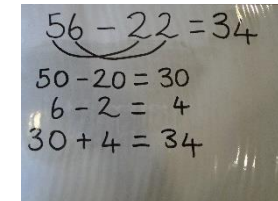 56 - 22 = 34
50 - 20 = 30
6 - 2 = 4
30 + 4 = 34